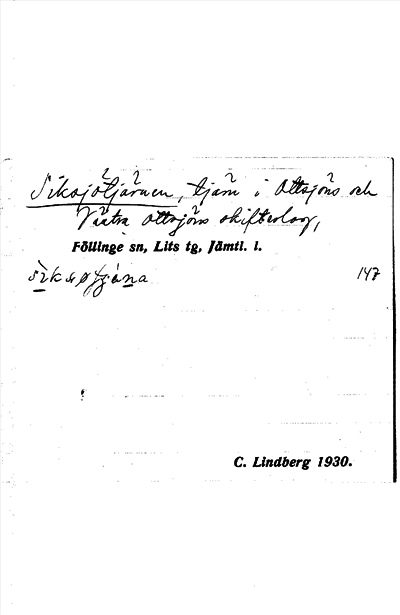 Siksjötjärnen, tjärn i Ottsjöns och
Västra Ottsjöns skifteslag,
Föllinge sn, Lits tg, Jämtl. l.
147
C. Lindberg 1930.